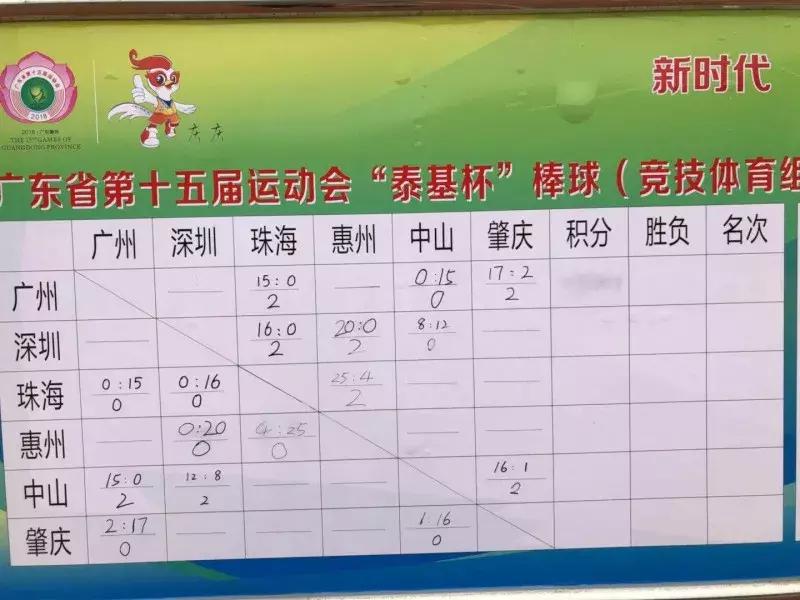 广东省第十五届运动会
2018
2018·广东肇庆
THE 15TH GAMES OF
GUANGDONG PROVINCE
庆庆
新时代
广东省第十五届运动会“泰基杯”棒球(竞技体育组
广州 深圳 珠海 惠州 中山 肇庆 积分 胜负 名次
广州 —— 15:0 2 —— 0:15 0 17:2 2
深圳 —— 16:0 2 20:0 2 8:12 0 ——
珠海 0:15 0 0:16 0 25:4 2 —— ——
惠州 —— 0:20 0 4:25 0 —— ——
中山 15:0 2 12:8 2 —— —— 16:1 2
肇庆 2:17 0 —— —— —— 1:16 0